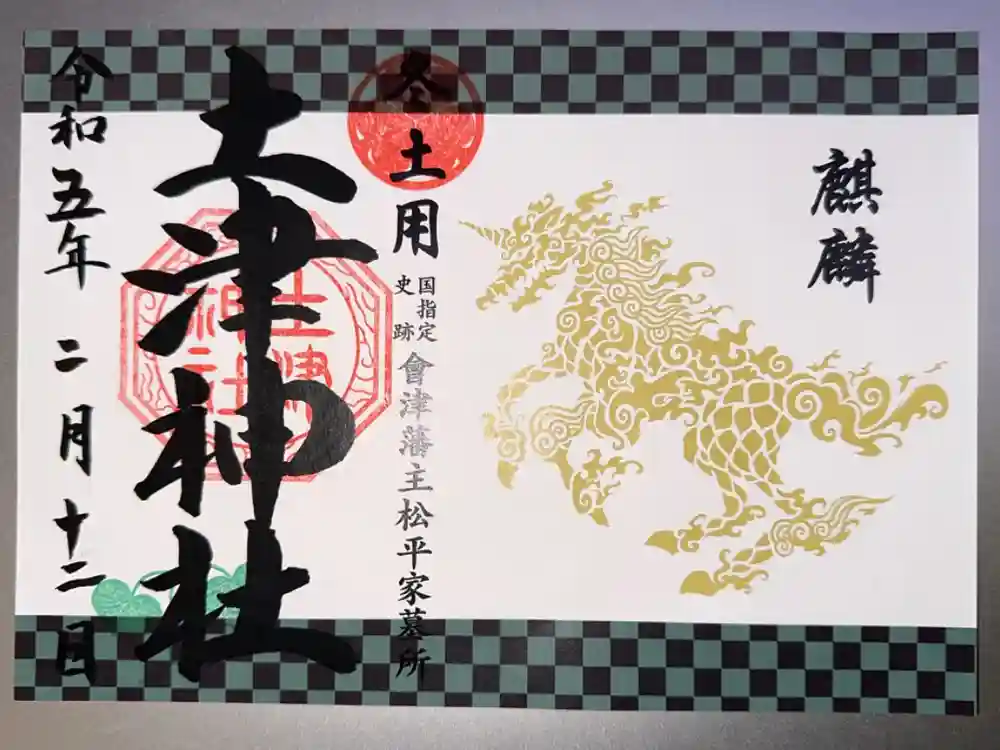 麒麟
冬土用
国指定
史跡
會津藩主松平家墓所
土津神社
土津
神社
令和五年二月十二日